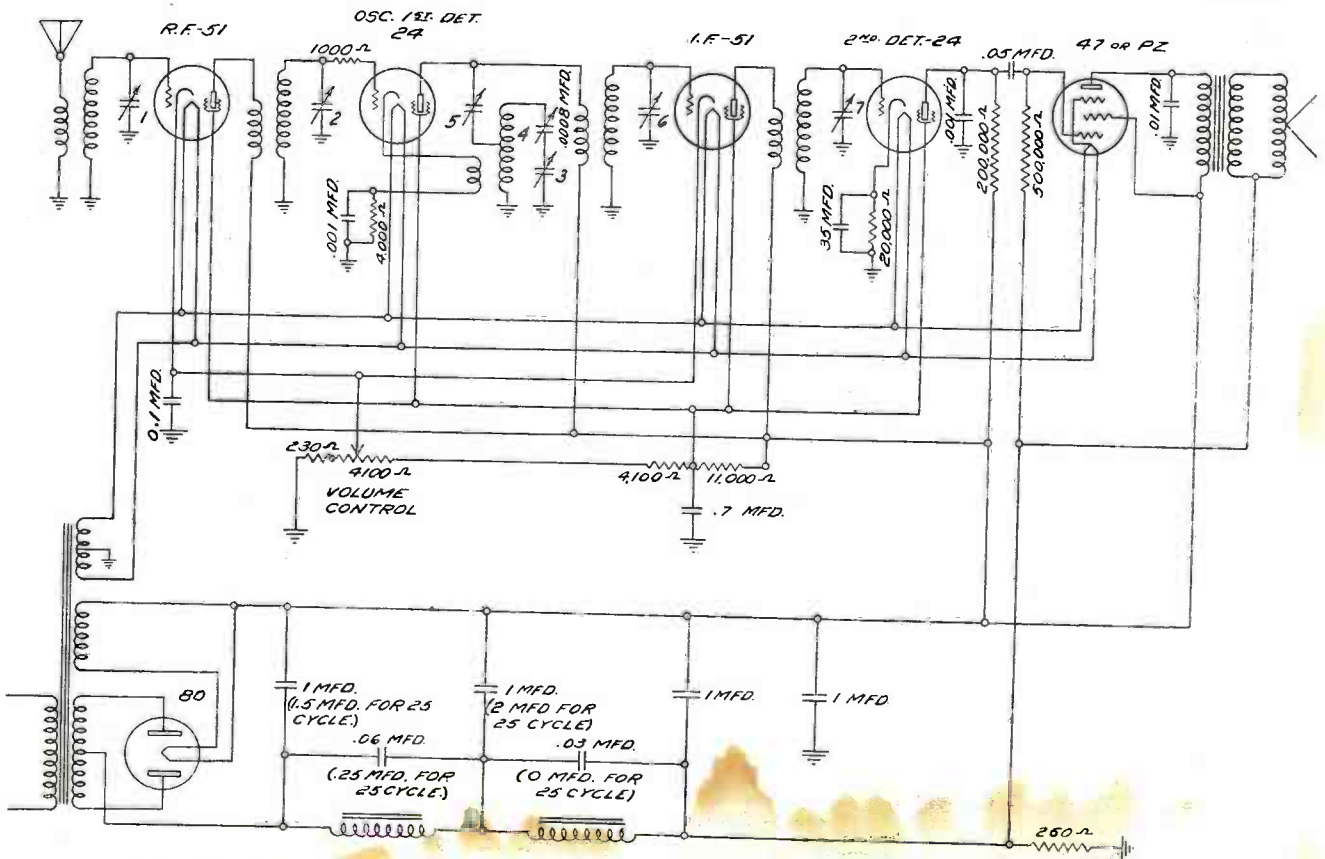 R.F.-51
OSC. 1ST. DET.
24
I.F.-51
2ND. DET.-24
47 OR PZ
1000 Ω
.05 MFD.
1
2
5
4
3
.0008 MFD.
6
7
.001 MFD.
200,000 Ω
500,000 Ω
.01 MFD.
.001 MFD.
4,000 Ω
.35 MFD.
20,000 Ω
0.1 MFD.
230 Ω
4100 Ω
VOLUME
CONTROL
4,100 Ω
11,000 Ω
.7 MFD.
80
1 MFD.
(1.5 MFD. FOR 25
CYCLE.)
1 MFD.
(2 MFD FOR
25 CYCLE)
1 MFD.
1 MFD.
.06 MFD.
(.25 MFD. FOR
25 CYCLE.)
.03 MFD.
(0 MFD. FOR
25 CYCLE)
260 Ω